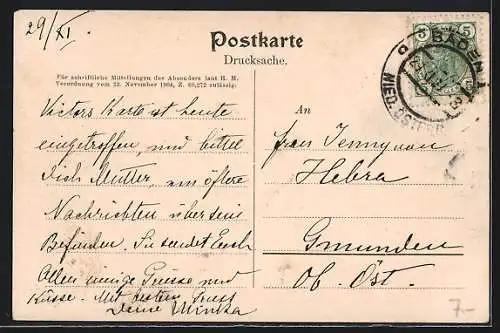 29/XI.
Postkarte
Drucksache.
Für schriftliche Mitteilungen des Absenders laut H. M.
Verordnung vom 22. November 1904, Z. 49,272 zulässig:
Victors Karte ist heute
eingetroffen, und bittet
dich Mutter, um öftere
Nachrichten über sein
Befinden. Sie sendet Euch
Allen innige Grüsse und
Küsse. Mit bestem Gruss
Deine Minka
5 5
BADEN
NIED. ÖSTER
An
Frau Jenny von
Hebra
Gmunden
Ob. Öst.
7-